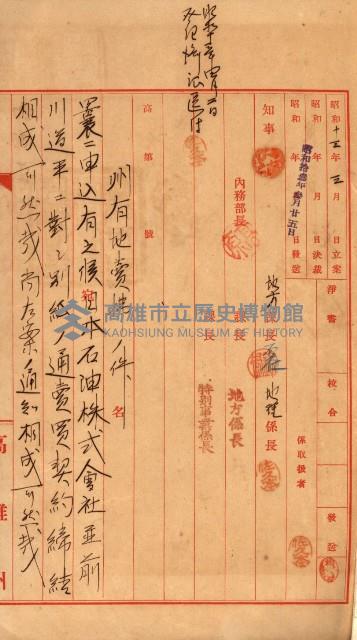 昭和十三年三月 日立案
昭和 年 月 日決裁
昭和 年 月 日發送
昭和拾參年參月廿五日
淨書
校合
發送
知事
內務部長
地方課長
課長
課長
地理係長
地方係長
特別事務係長
係取扱者
高 第 號
州有地賣拂ノ件
宛名
曩ニ申込有之候日本石油株式會社並前
川道平ニ對シ別紙ノ通賣買契約締結
相成可然哉尚左案ノ通知相成可然哉
高雄州
高雄市立歷史博物館
KAOHSIUNG MUSEUM OF HISTORY